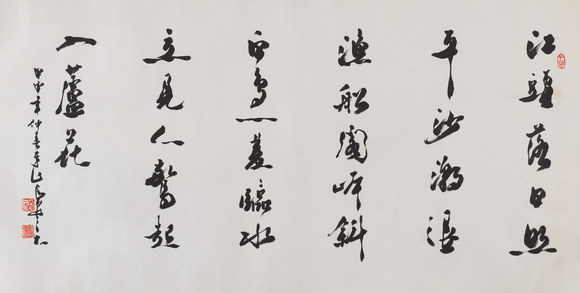 江頭落日照
平沙潮退
漁船閣岸斜
白鳥一雙臨水
立見人驚起
入蘆花
甲申年仲春